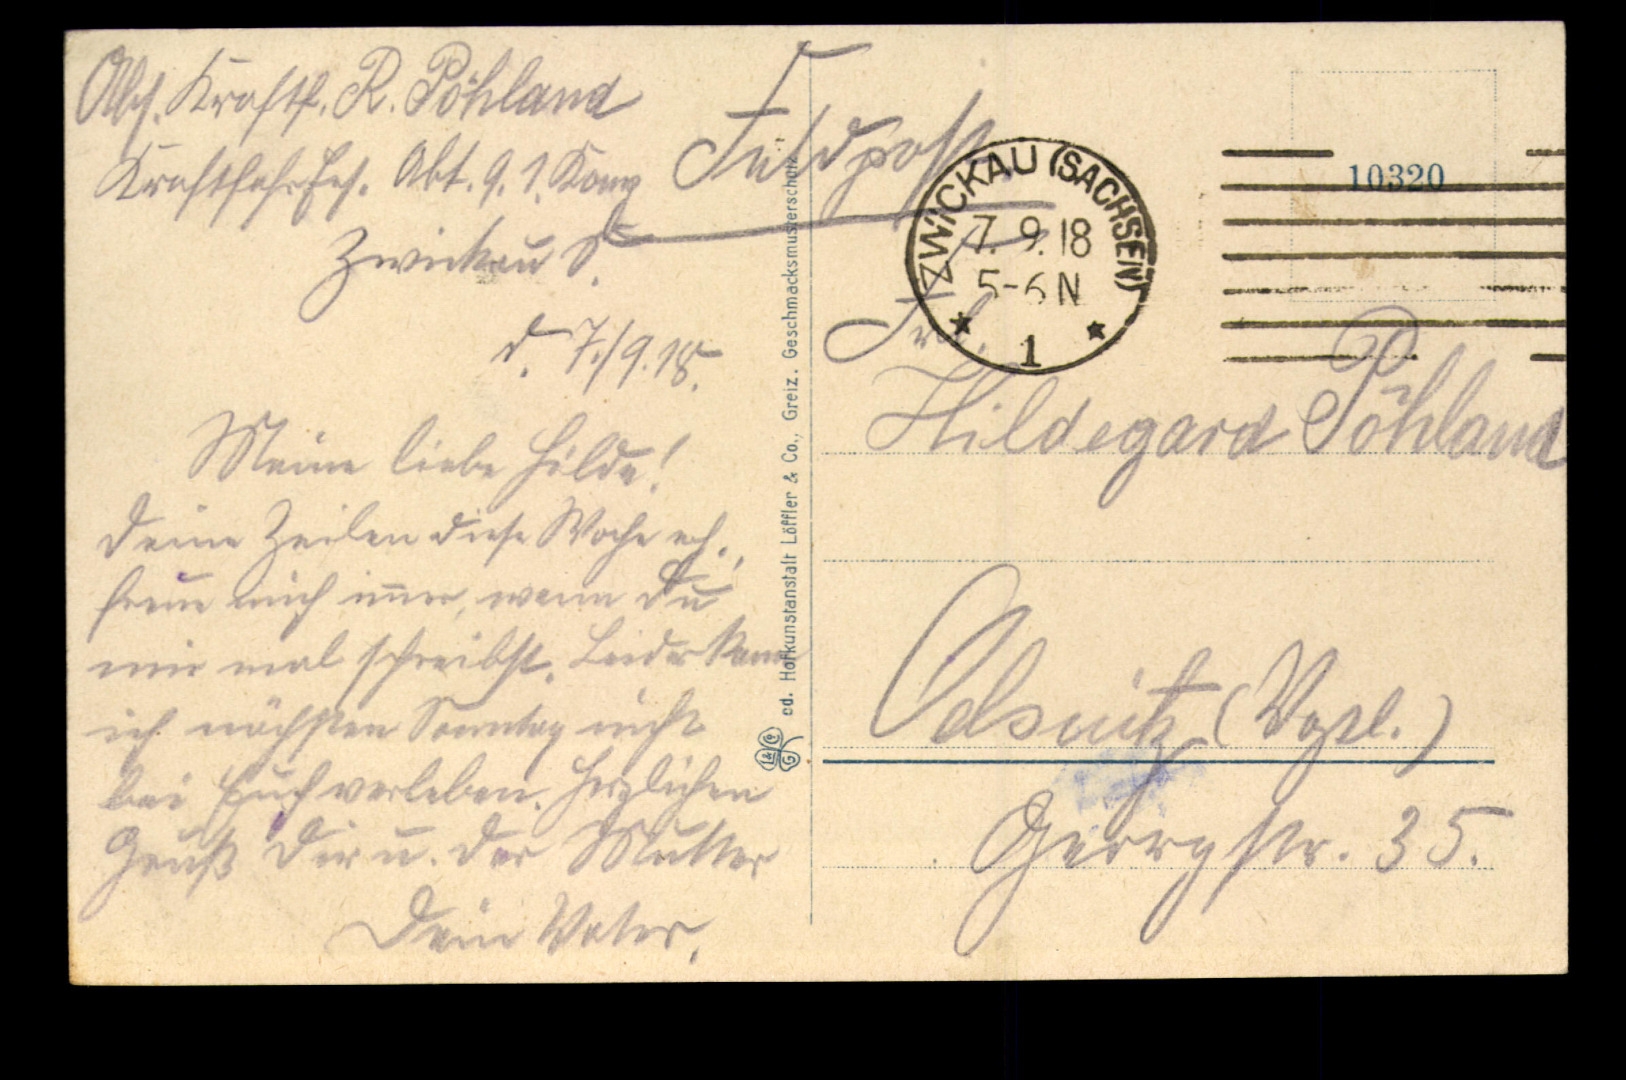 Abs. Kraftf. R. Pöhland
Kraftfahr Ers. Abt. 9. 1. Komp
Zwickau S.
d. 7./9.18.
Meine liebe Hilde!
Deine Zeilen diese Woche erh.,
freue mich immer, wenn Du
mir mal schreibst. Leider kann
ich nächsten Sonntag nicht
bei Euch verleben. Herzlichen
Gruß Dir u. der Mutter
Dein Vater.
ed. Hofkunstanstalt Löffler & Co., Greiz. Geschmacksmusterschutz
L & Co G
Feldpost
ZWICKAU (SACHSEN)
7. 9. 18
5-6 N
1
10320
Frl.
Hildegard Pöhland
Oelsnitz (Vogtl.)
Georgstr. 35.